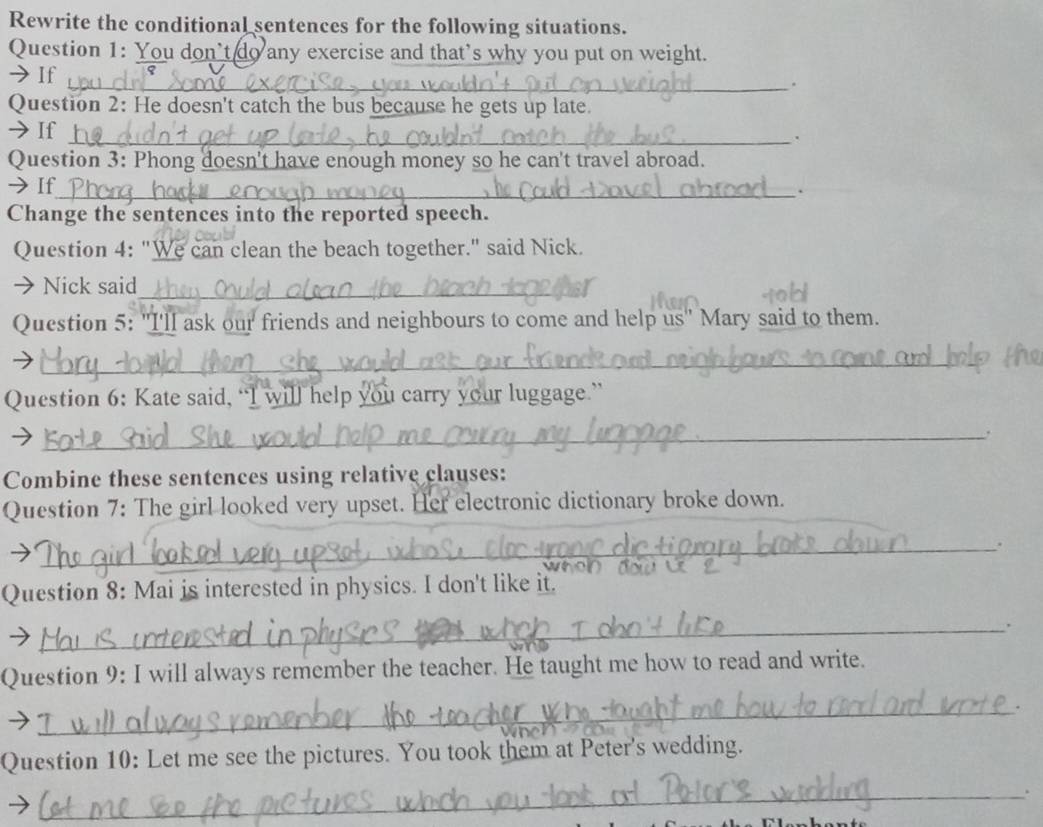 Rewrite the conditional sentences for the following situations.
Question 1: You don't do any exercise and that's why you put on weight.
→ If you did some exercise, you wouldn't put on weight.
Question 2: He doesn't catch the bus because he gets up late.
→ If he didn't get up late, he couldn't catch the bus.
Question 3: Phong doesn't have enough money so he can't travel abroad.
→ If Phong had enough money, he could travel abroad.
Change the sentences into the reported speech.
they could
Question 4: "We can clean the beach together." said Nick.
→ Nick said they could clean the beach together
She would them told
Question 5: "I'll ask our friends and neighbours to come and help us" Mary said to them.
→ Mary told them she would ask our friends and neighbours to come and help the
She would me my
Question 6: Kate said, "I will help you carry your luggage."
→ Kate said she would help me carry my luggage.
Combine these sentences using relative clauses:
whose
Question 7: The girl looked very upset. Her electronic dictionary broke down.
→ The girl looked very upset whose electronic dictionary broke down.
Question 8: Mai is interested in physics. I don't like it.
→ Mai is interested in physics which I don't like.
who
Question 9: I will always remember the teacher. He taught me how to read and write.
→ I will always remember the teacher who taught me how to read and write.
Question 10: Let me see the pictures. You took them at Peter's wedding.
→ Let me see the pictures which you took at Peter's wedding.